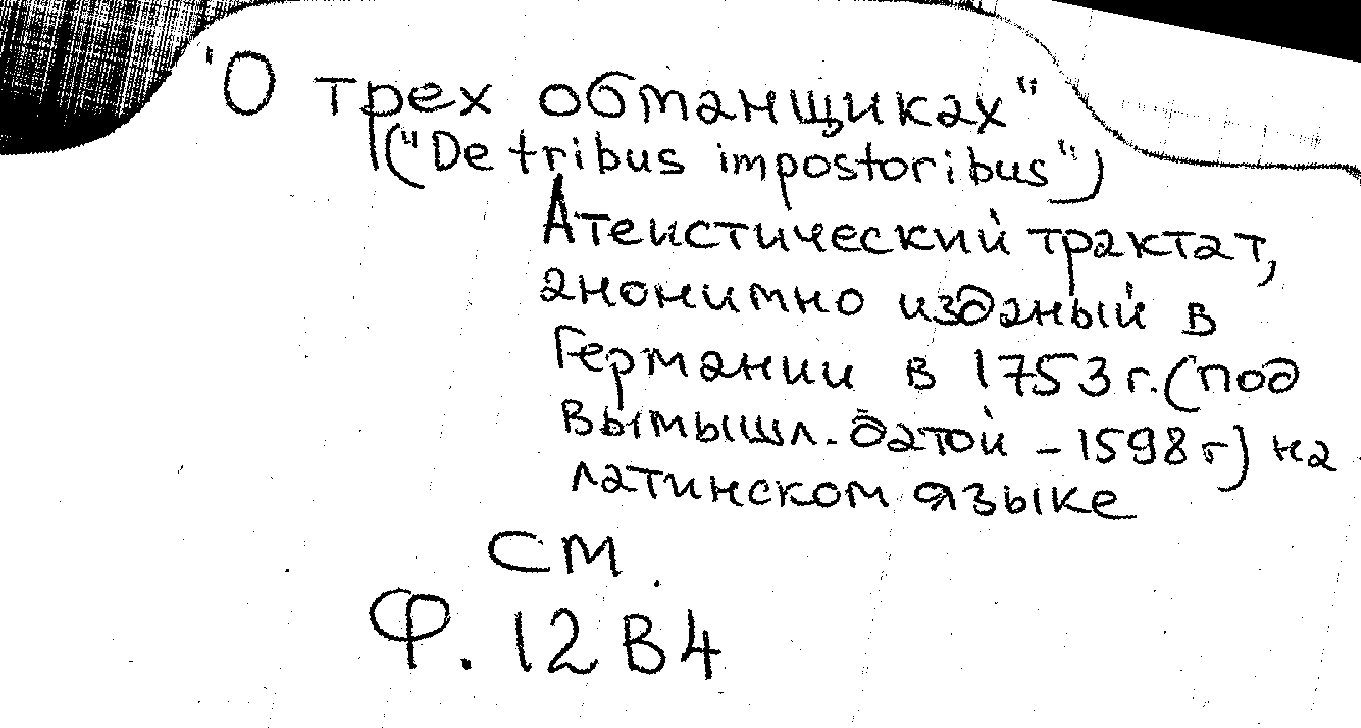 "О трех обманщиках"
("De tribus impostoribus")
Атеистический трактат,
анонимно изданый в
Германии в 1753 г. (под
вымышл. датой – 1598 г) на
латинском языке
см.
Ф. 12 В4